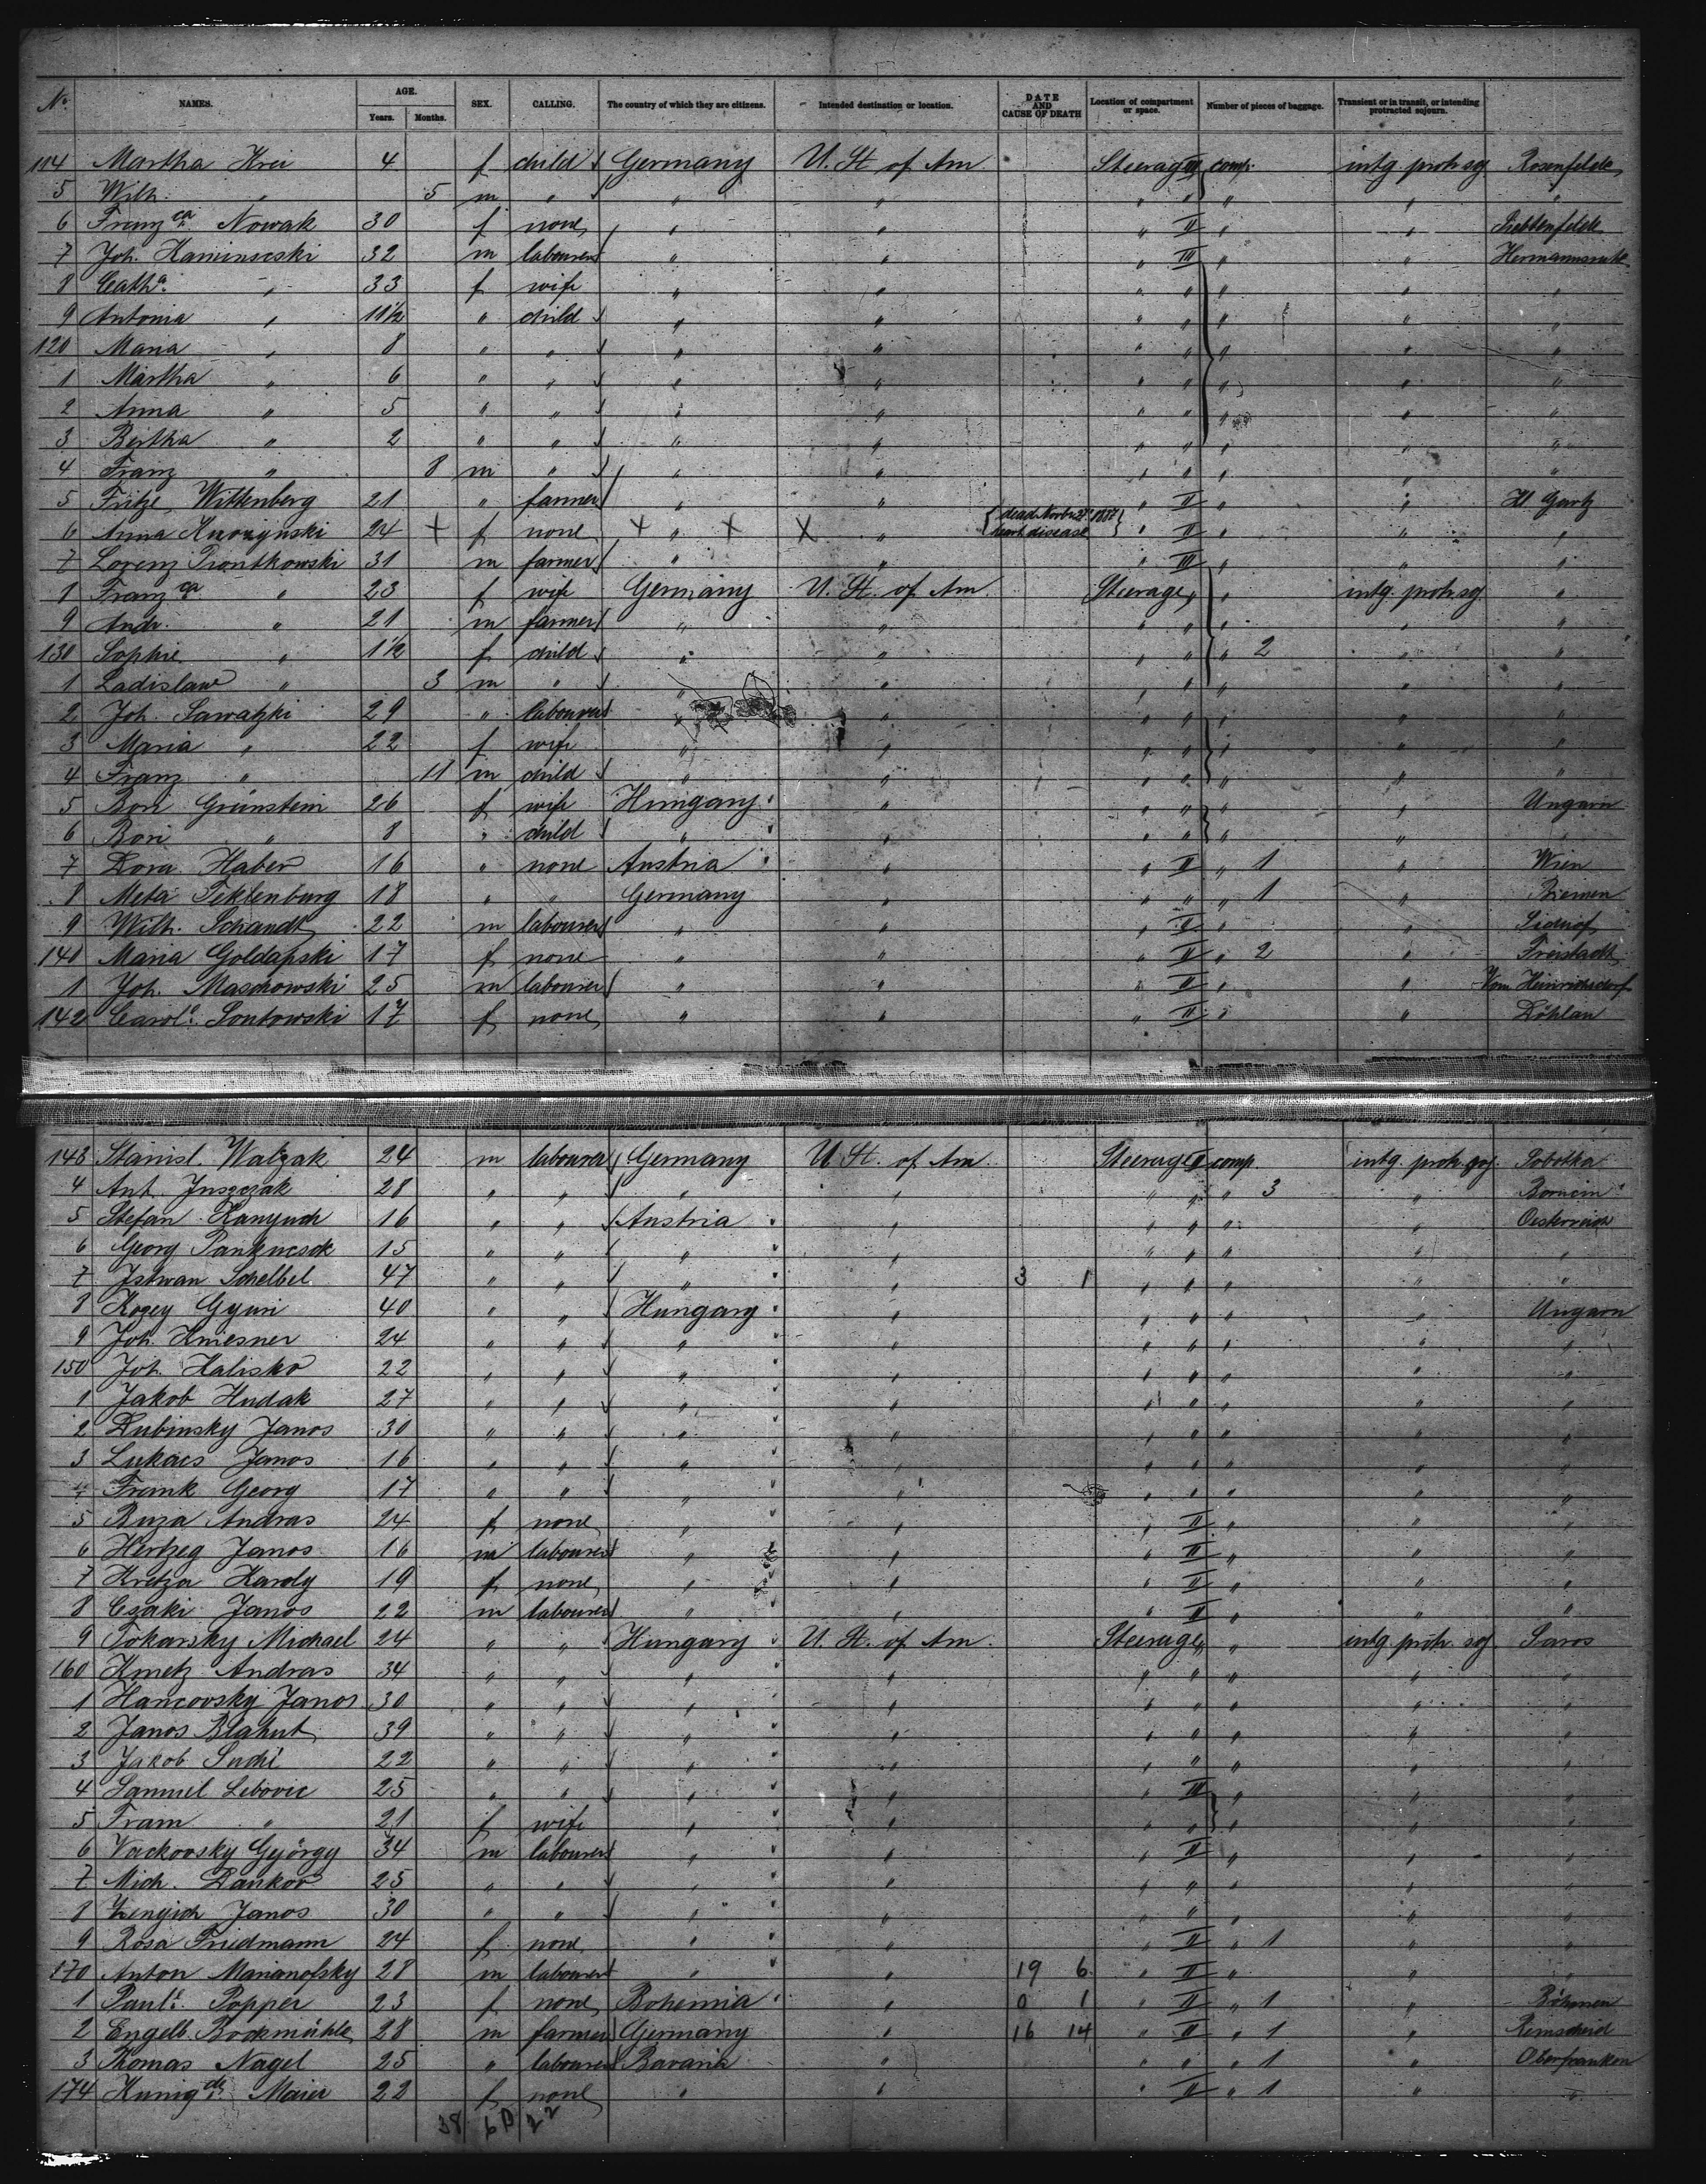 No. NAMES. AGE. Years. Months. SEX. CALLING. The country of which they are citizens. Intended destination or location. DATE AND CAUSE OF DEATH Location of compartment or space. Number of pieces of baggage. Transient or in transit, or intending protracted sojourn.
114 Martha Krei 4 f child Germany U. St. of Am. Steerage III comp. intg. protr. soj. Rosenfelde
5 Wilh. " 5 m " " " " " " " "
6 Franzca Nowak 30 f none " " " II " "
7 Joh. Kaminseski 32 m labourer " " " III " " Hermannsruhe
8 Catha. " 33 f wife " " " " " " "
9 Antonia " 11½ " child " " " " " " "
120 Maria " 8 " " " " " " " " "
1 Martha " 6 " " " " " " " " "
2 Anna " 5 " " " " " " " " "
3 Bertha " 2 " " " " " " " " "
4 Franz " 8 m " " " " " " " "
5 Fritze Wittenberg 21 " farmer " " " II " " Kl Gartz
6 Anna 24 + f none + " + X " dead Novbr 27. 1887 heart disease " II " " "
7 Lorenz Piontkowski 31 m farmer " " " III " " "
8 Franzca " 23 f wife Germany U. St. of Am. Steerage " " intg. protr. soj. "
9 Andr. " 21 m farmer " " " " " " "
130 Sophie " 1½ f child " " " " " 2 " "
1 Ladislaw " 3 m " " " " " " " "
2 Joh. Sawatzki 29 " labourer " " " " " " "
3 Maria " 22 f wife " " " " " " "
4 Franz " 11 m child " " " " " " "
5 Bori Grünstein 26 f wife Hungary " " " " " Ungarn
6 Bori " 8 " child " " " " " " "
7 Dora Haber 16 " none Austria " " II " 1 " Wien
8 Meta Teklenburg 18 " " Germany " " " " 1 " Bremen
9 Wilh. Schandt 22 m labourer " " " II " "
140 Maria Goldapski 17 f none " " " II " 2 " Freistadt
1 Joh. Maschowski 25 m labourer " " " II " " Vom Heinrichsdorf
142 Carole. Sontowski 17 f none " " " II " " Döhlau
143 Stanisl. Walzak 24 m labourer Germany U. St. of Am. Steerage II comp. intg. protr. soj. Sobotka
4 Ant. Juszczak 28 " " " " " " " 3 "
5 Stefan Kanyuch 16 " " Austria " " " " " Oesterreich
6 Georg 15 " " " " " " " " "
7 Istwan Schelbel 47 " " " " 3 1 " " " " "
8 Kogey Gyuri 40 " " Hungary " " " " " Ungarn
9 Joh. Kmesner 24 " " " " " " " " "
150 Joh. Halisko 22 " " " " " " " " "
1 Jakob Hudak 27 " " " " " " " " "
2 Dubinsky Janos 30 " " " " " " " " "
3 Lukacs Janos 16 " " " " " " " " "
4 Frank Georg 17 " " " " " " " " "
5 Buza Andras 24 f none " " " II " " "
6 Hertzeg Janos 16 m labourer " " " II " " "
7 Kretza Karoly 19 f none " " " II " " "
8 Czaki Janos 22 m labourer " " " II " " "
9 Tokarsky Michael 24 " " Hungary U. St. of Am. Steerage " " intg. protr. soj Saros
160 Kmetz Andras 34 " " " " " " " " "
1 Hancovsky Janos 30 " " " " " " " " "
2 Janos Blahut 39 " " " " " " " " "
3 Jakob Suchi 22 " " " " " " " " "
4 Samuel Lebovic 25 " " " " " III " " "
5 Fram " 21 f wife " " " " " " "
6 Vackovsky György 34 m labourer " " " II " " "
7 Mich. Dankov 25 " " " " " " " " "
8 Janos 30 " " " " " " " " "
9 Rosa Friedmann 24 f none " " " II " 1 " "
170 Anton Marianofsky 28 m labourer " " 19 6 " II " " "
1 Paule. Popper 23 f none Bohemia " 0 1 " II " 1 " Böhmen
2 Engelb. Bockmühle 28 m farmer Germany " 16 14 " II " 1 " Remscheid
3 Thomas Nagel 25 " labourer Bavaria " " " " 1 " Oberfranken
174 Kunigde. Maier 22 f none " " " II " 1 " "
38 6 D 22